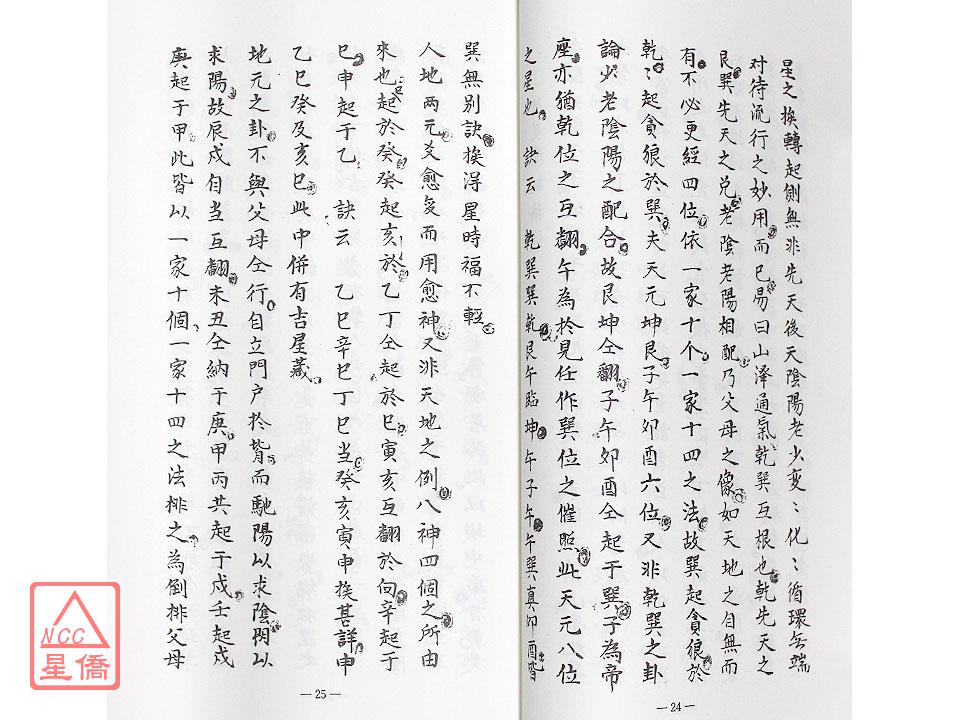 星之挨轉起例無非先天後天陰陽老少变：化：循環無端
对待流行之妙用而已易曰山泽通氣乾巽互根也乾先天之
艮巽先天之兑老陰老陽相配乃父母之像如天地之自無而
有不必更經四位依一家十个一家十四之法故巽起貪狼於
乾：起貪狼於巽夫天元坤艮子午卯酉六位又非乾巽之卦
論少老陰陽之配合故艮坤仝翻子午卯酉仝起于巽子為帝
座亦猶乾位之互翻午為扵見任作巽位之催照此天元八位
之星也 訣云 乾巽巽乾艮午臨坤午子午午巽真卯酉皆
— 24 —
巽無别訣挨得星時福不輕
人地两元爻愈変而用愈神又非天地之例八神四個之所由
來也起於癸癸起亥於乙丁仝起於巳寅亥互翻於向辛起于
巳申起于乙 訣云 乙巳辛巳丁巳当癸亥寅申挨甚詳申
乙巳癸及亥巳此中併有吉星藏
地元之卦不與父母仝行自立門户扵皆而馳陽以求陰閃以
求陽故辰戍自当互翻未丑仝納于庚甲丙共起于戍壬起戍
庚起于甲此皆以一家十個一家十四之法排之為倒排父母
— 25 —
NCC
星僑